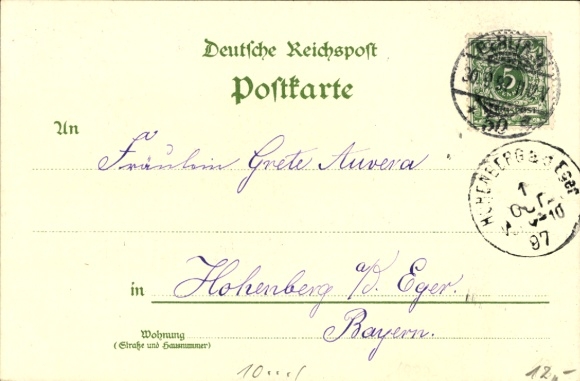 Deutsche Reichspost
Postkarte
An
Fräulein Grete Auvera
in Hohenberg a/d. Eger.
Bayern.
Wohnung
(Straße und Hausnummer)
5
50
HOHENBERG a. d. Eger
1
OCT.
97
12,-